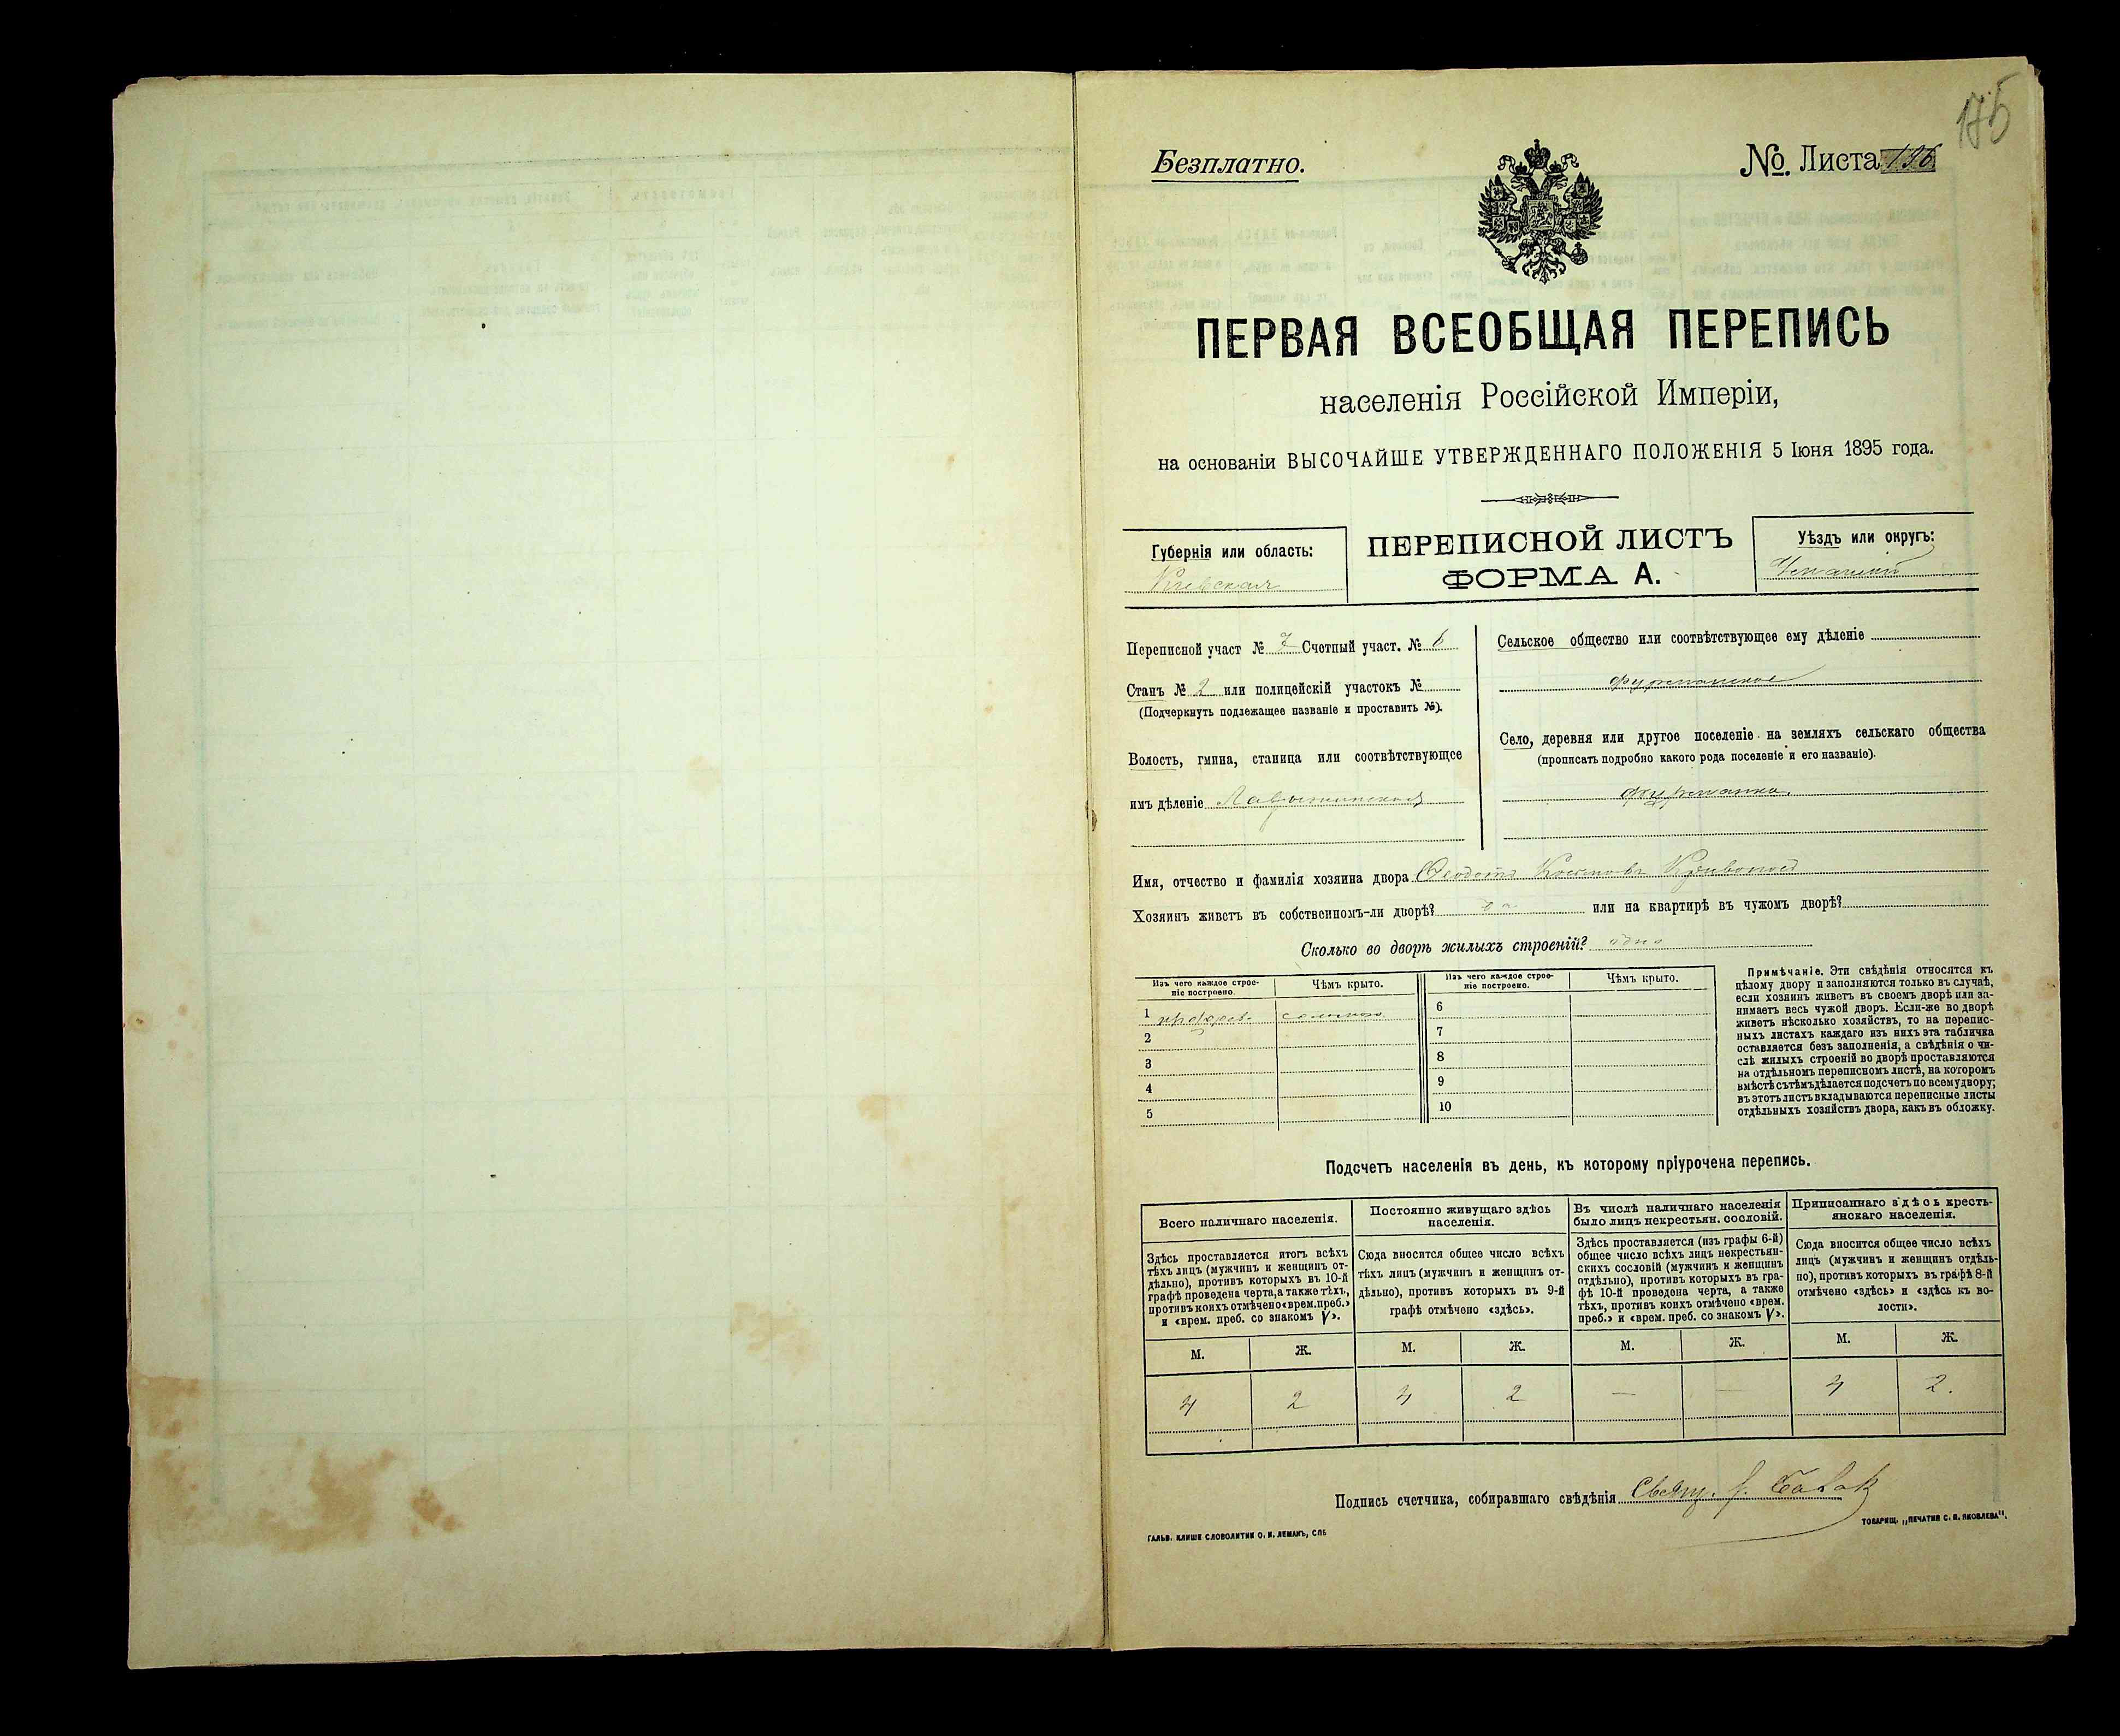 175
Безплатно.
№. Листа 196
ПЕРВАЯ ВСЕОБЩАЯ ПЕРЕПИСЬ
населенія Россійской Имперіи,
на основаніи ВЫСОЧАЙШЕ УТВЕРЖДЕННАГО ПОЛОЖЕНІЯ 5 Іюня 1895 года.
Губернія или область:
Кіевская
ПЕРЕПИСНОЙ ЛИСТЪ
ФОРМА А.
Уѣздъ или округъ:
Уманскій
Переписной участ № 7 Счетный участ. № 6
Станъ № 2 или полицейскій участокъ №
(Подчеркнуть подлежащее названіе и проставить №).
Волость, гмина, станица или соотвѣтствующее
имъ дѣленіе
Сельское общество или соотвѣтствующее ему дѣленіе
Фурманское
Село, деревня или другое поселеніе на земляхъ сельскаго общества
(прописать подробно какого рода поселеніе и его названіе).
Фурманка.
Имя, отчество и фамилія хозяина двора Ѳеодотъ Костовъ Кривонос
Хозяинъ живетъ въ собственномъ-ли дворѣ? да или на квартирѣ въ чужомъ дворѣ?
Сколько во дворѣ жилыхъ строеній? одно
Изъ чего каждое строе-
ніе построено.
Чѣмъ крыто.
Изъ чего каждое строе-
ніе построено.
Чѣмъ крыто.
1 соломою
2
3
4
5
6
7
8
9
10
Примѣчаніе. Эти свѣдѣнія относятся къ
цѣлому двору и заполняются только въ случаѣ,
если хозяинъ живетъ въ своемъ дворѣ или за-
нимаетъ весь чужой дворъ. Если-же во дворѣ
живетъ нѣсколько хозяйствъ, то на перепис-
ныхъ листахъ каждаго изъ нихъ эта табличка
оставляется безъ заполненія, а свѣдѣнія о чи-
слѣ жилыхъ строеній во дворѣ проставляются
на отдѣльномъ переписномъ листѣ, на которомъ
вмѣстѣ съ тѣмъ дѣлается подсчетъ по всему двору;
въ этотъ листъ вкладываются переписные листы
отдѣльныхъ хозяйствъ двора, какъ въ обложку.
Подсчетъ населенія въ день, къ которому пріурочена перепись.
Всего наличнаго населенія.
Здѣсь проставляется итогъ всѣхъ
тѣхъ лицъ (мужчинъ и женщинъ от-
дѣльно), противъ которыхъ въ 10-й
графѣ проведена черта, а также тѣхъ,
противъ коихъ отмѣчено «врем. преб.»
и «врем. преб. со знакомъ V».
Постоянно живущаго здѣсь
населенія.
Сюда вносится общее число всѣхъ
тѣхъ лицъ (мужчинъ и женщинъ от-
дѣльно), противъ которыхъ въ 9-й
графѣ отмѣчено «здѣсь».
Въ числѣ наличнаго населенія
было лицъ некрестьян. сословій.
Здѣсь проставляется (изъ графы 6-й)
общее число всѣхъ лицъ некрестьян-
скихъ сословій (мужчинъ и женщинъ
отдѣльно), противъ которыхъ въ гра-
фѣ 10-й проведена черта, а также
тѣхъ, противъ коихъ отмѣчено «врем.
преб.» и «врем. преб. со знакомъ V».
Приписаннаго здѣсь кресть-
янскаго населенія.
Сюда вносится общее число всѣхъ
лицъ (мужчинъ и женщинъ отдѣль-
но), противъ которыхъ въ графѣ 8-й
отмѣчено «здѣсь» и «здѣсь къ во-
лости».
М. Ж. М. Ж. М. Ж. М. Ж.
4 2 4 2 — — 4 2.
Подпись счетчика, собиравшаго свѣдѣнія Свящ.
ГАЛЬВ. КЛИШЕ СЛОВОЛИТНИ О. И. ЛЕМАНЪ, СПБ
ТОВАРИЩ. „ПЕЧАТНЯ С. П. ЯКОВЛЕВА“.